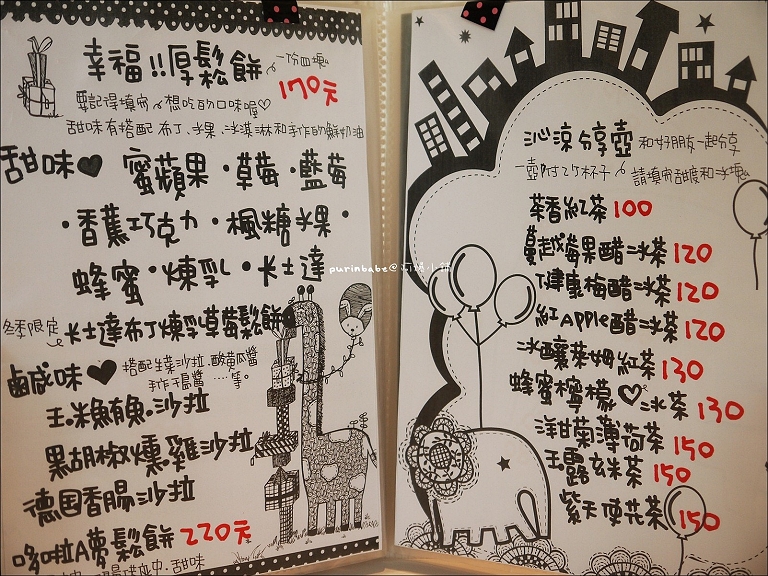 幸福!!厚鬆餅
一份四塊
170元
要記得填寫想吃的口味喔♡
甜味有搭配布丁、水果、冰淇淋和手作的鮮奶油
甜味♥ 蜜蘋果・草莓・藍莓
・香蕉巧克力・楓糖水果・
蜂蜜・煉乳・卡士達
冬季限定 卡士達布丁煉乳草莓鬆餅
鹹味♥ 搭配生菜沙拉、酸黃瓜醬
手作千島醬……等。
玉米鮪魚沙拉
黑胡椒燻雞沙拉
德國香腸沙拉
哆啦A夢鬆餅 220元
甜味
purinbabe@
沁涼分享壺 和好朋友一起分享
一壺附2個杯子 請填寫甜度和冰塊
茶香紅茶 100
蔓越莓果醋冰茶 120
健康梅醋冰茶 120
紅Apple醋冰茶 120
冰釀萊姆紅茶 130
蜂蜜檸檬♡冰茶 130
洋甘菊薄荷茶 150
玉露玄米茶 150
紫天使花茶 150